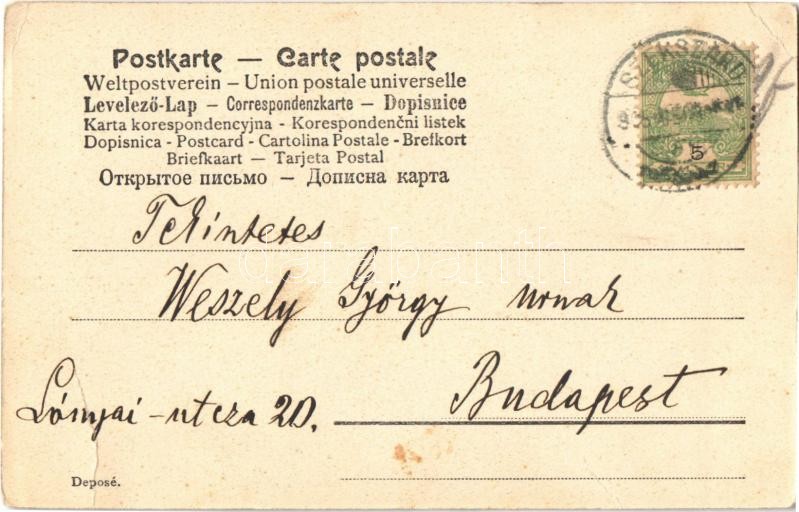 Postkarte — Carte postale
Weltpostverein – Union postale universelle
Levelező-Lap – Correspondenzkarte – Dopisnice
Karta korespondencyjna - Korespondenční listek
Dopisnica - Postcard - Cartolina Postale - Brefkort
Briefkaart — Tarjeta Postal
Открытое письмо — Дописна карта
SZEKSZÁRD
5
Tekintetes
Weszely György urnak
Budapest
Lónyai-utcza 20.
Deposé.
darabanth